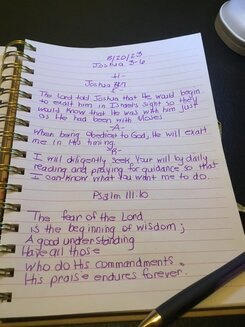 8/20/23
Joshua 3-6
-H-
Joshua 3:7
-E-
The Lord told Joshua that He would begin
to exalt him in Israel's sight so they
would know that He was with him just
as He had been with Moses
-A-
When being obedient to God, He will exalt
me in His timing.
-R-
I will diligently seek Your will by daily
reading and praying for guidance so that
I can know what You want me to do.
Psalm 111:10
The fear of the Lord
is the beginning of wisdom;
A good understanding
Have all those
who do His commandments.
His praise endures forever.